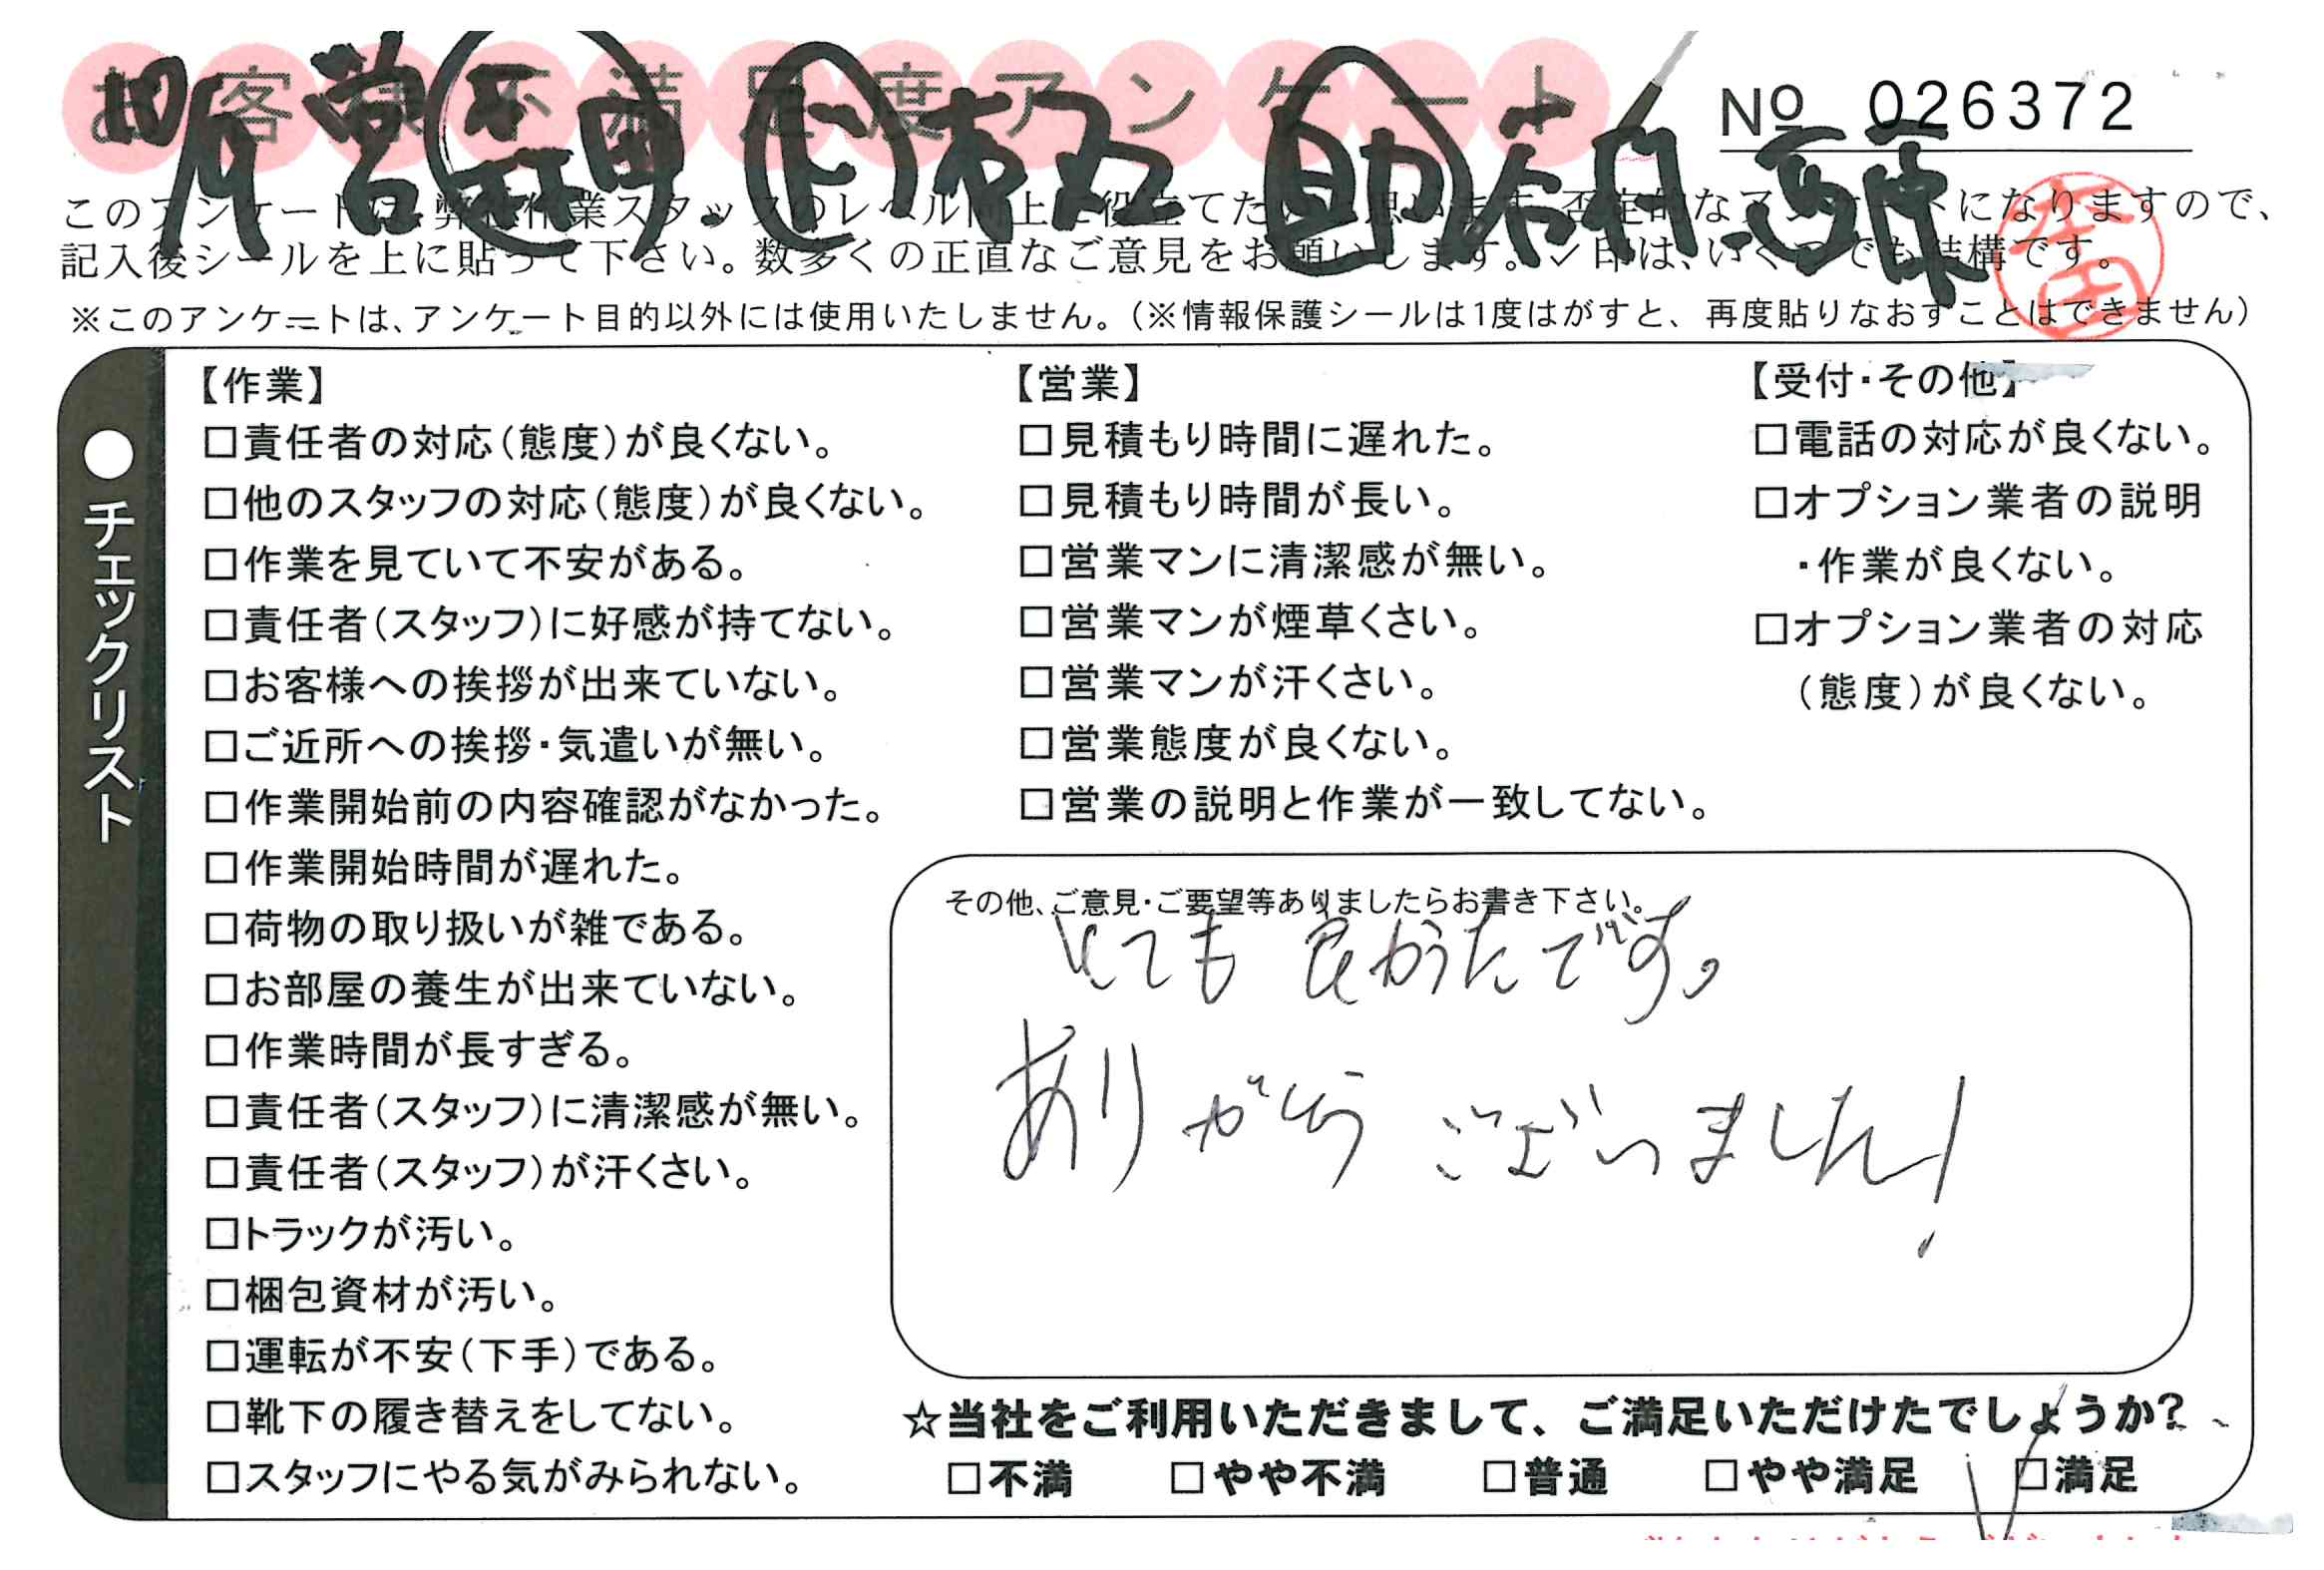 お客様不満足度アンケート
No 026372
このアンケートは、弊社作業スタッフのレベル向上に役立てたいと思います。否定的なアンケートになりますので、
記入後シールを上に貼って下さい。数多くの正直なご意見をお願いします。✓印は、いくつでも結構です。
※このアンケートは、アンケート目的以外には使用いたしません。(※情報保護シールは1度はがすと、再度貼りなおすことはできません)
●チェックリスト
【作業】
□責任者の対応(態度)が良くない。
□他のスタッフの対応(態度)が良くない。
□作業を見ていて不安がある。
□責任者(スタッフ)に好感が持てない。
□お客様への挨拶が出来ていない。
□ご近所への挨拶・気遣いが無い。
□作業開始前の内容確認がなかった。
□作業開始時間が遅れた。
□荷物の取り扱いが雑である。
□お部屋の養生が出来ていない。
□作業時間が長すぎる。
□責任者(スタッフ)に清潔感が無い。
□責任者(スタッフ)が汗くさい。
□トラックが汚い。
□梱包資材が汚い。
□運転が不安(下手)である。
□靴下の履き替えをしてない。
□スタッフにやる気がみられない。
【営業】
□見積もり時間に遅れた。
□見積もり時間が長い。
□営業マンに清潔感が無い。
□営業マンが煙草くさい。
□営業マンが汗くさい。
□営業態度が良くない。
□営業の説明と作業が一致してない。
【受付・その他】
□電話の対応が良くない。
□オプション業者の説明
・作業が良くない。
□オプション業者の対応
(態度)が良くない。
その他、ご意見・ご要望等ありましたらお書き下さい。
とても良かったです。
ありがとうございました!
☆当社をご利用いただきまして、ご満足いただけたでしょうか?
□不満 □やや不満 □普通 □やや満足 □満足